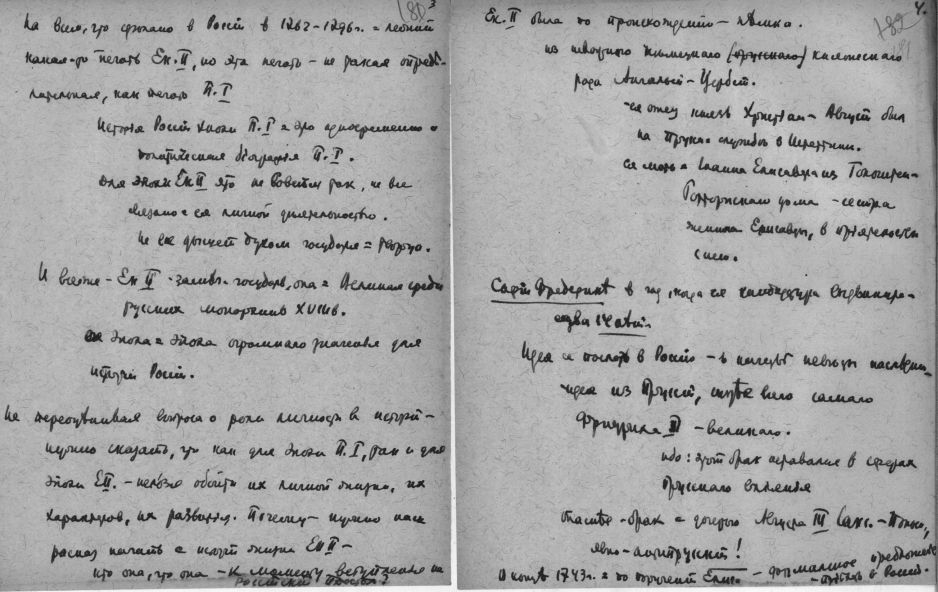 3
180
На всем, что сделано в России в 1762–1796 г. = лежит
печать Ек. II, но эта печать – не такая опреде-
лительная, как печать П. I
История России эпохи П. I = это одновременно и
политическая биография П. I.
Для эпохи Ек II это не совсем так, не все
связано с ея личной деятельностью.
Не все дышет духом государя = творца.
И все же – Ек II государь, она = Великая среди
русских монархинь XVIII в.
Ея эпоха = эпоха огромного значения для
истории России.
Не переоценивая вопроса о роли личности в истории –
нужно сказать, что как для эпохи П. I, так и для
эпохи Е II. – нельзя обойти их личной жизни, их
характеров, их развития. Почему – нужно наш
рассказ начать с истории жизни Ек II –
кто она, что она – к моменту вступления на
Российский престол?
4.
182
Ек. II была по происхождению – немка.
из немецкого (прусского) княжеского
рода Ангальт – Цербст.
ея отец князь Христиан – Август был
на прусск. службе в Штеттине.
ея мать = Иоанна Елисавета из Гольштейн –
Готторпского дома – сестра
жениха Елисаветы,
Софи Фредерике в год, когда ея кандидатура выдвинула-
14 лет.
Идея ея послать в Россию – в невесты наследни-
идея из Пруссии, самого
Фридриха II – великого.
ибо: этот брак оставался в сферах
прусского влияния
– брак с дочерью Августа III Сакс. – Польск.,
явно – антипрусский!
В конце 1743 г. = по поручению Елис. – формальное предложение
– в Россию.